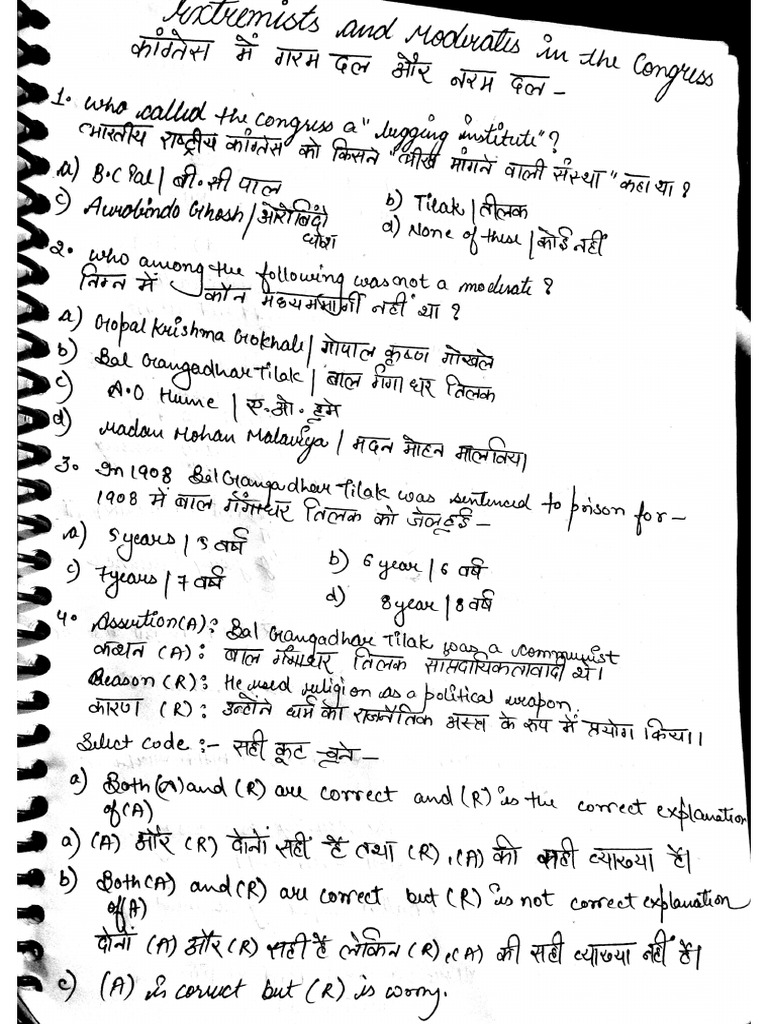 Extremists and Moderates in the Congress
कांग्रेस में गरम दल और नरम दल -
1. who called the congress a "begging institute"?
भारतीय राष्ट्रीय कांग्रेस को किसने "भीख मांगने वाली संस्था" कहा था ?
a) B.C Pal / बी.सी पाल
b) Tilak / तीलक
c) Aurobindo Ghosh / ओरोबिंदो घोष
d) None of these / कोई नहीं
2. who among the following was not a moderate ?
निम्न में कौन मध्यममार्गी नहीं था ?
a) Gopal Krishna Gokhale / गोपाल कृष्ण गोखले
b) Bal Gangadhar Tilak / बाल गंगाधर तिलक
c) A.O Hume / ए.ओ. ह्रूमे
d) Madan Mohan Malaviya / मदन मोहन मालविया
3. In 1908 Bal Gangadhar Tilak was sentenced to prison for -
1908 में बाल गंगाधर तिलक को जेल हुई -
a) 5 years / 5 वर्ष
b) 6 year / 6 वर्ष
c) 7 years / 7 वर्ष
d) 8 year / 8 वर्ष
4. Assertion (A): Bal Gangadhar Tilak was a communist
कथन (A): बाल गंगाधर तिलक साम्प्रदायिकतावादी थे।
Reason (R): He used religion as a political weapon.
कारण (R): उन्होंने धर्म को राजनैतिक अस्त्र के रूप में प्रयोग किया।
Select code :- सही कूट चुने -
a) Both (A) and (R) are correct and (R) is the correct explanation
of (A)
a) (A) और (R) दोनों सही हैं तथा (R), (A) की सही व्याख्या है।
b) Both (A) and (R) are correct but (R) is not correct explanation
of (A)
दोनों (A) और (R) सही हैं लेकिन (R), (A) की सही व्याख्या नहीं है।
c) (A) is correct but (R) is worng.